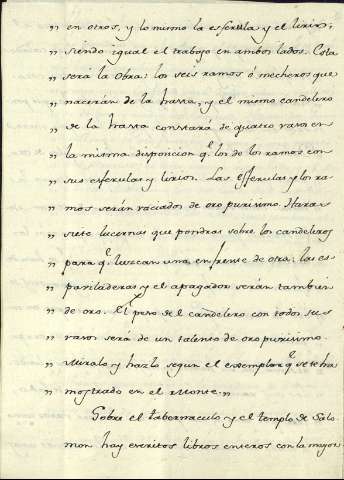 „ en otros, y lo mismo la esferula y el lirio,
„ siendo igual el trabajo en ambos lados. Esta
„ será la obra: los seis ramos ó mecheros que
„ nacerán de la hasta, y el mismo candelero
„ de la hasta constará de quatro vasos en
„ la misma disposicion q.e los de los ramos con
„ sus esferulas y lirios. Las esferulas y los ra-
„ mos serán vaciados de oro purisimo. Haras
„ siete lucernas que pondras sobre los candeleros
„ para q.e luzcan una enfrente de otra: las es-
„ paviladeras y el apagador serán tambien
„ de oro. El peso del candelero con todos sus
„ vasos será de un talento de oro purisimo.
„ Miralo y hazlo segun el exemplar q.e se te ha
„ mostrado en el Monte. „
Sobre el tabernaculo y el templo de Salo-
mon hay escritos libros enteros con la mayor